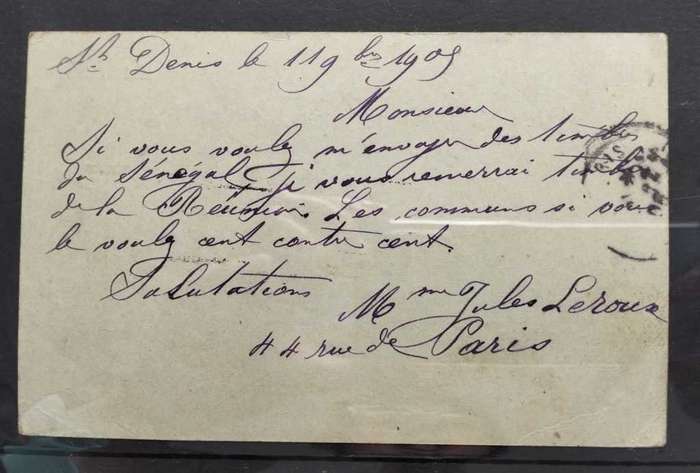 St Denis le 11 9bre 1905
Monsieur
Si vous voulez m'envoyer des timbres
du Sénégal, je vous remerrai timbres
de la Réunion. Les communs si vous
le voulez cent contre cent.
Salutations
Mme Jules Leroux
44 rue de Paris